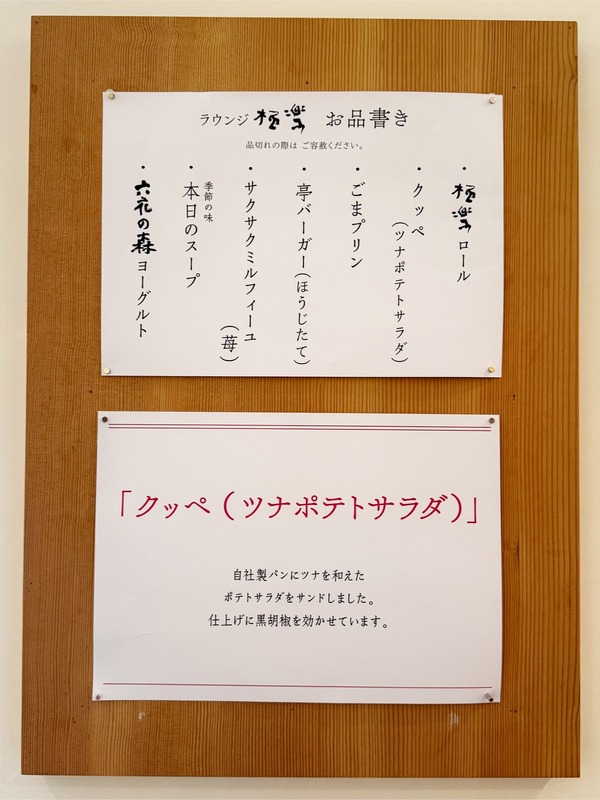 ラウンジ 極楽 お品書き
品切れの際は ご容赦ください。
・極楽ロール
・クッペ
(ツナポテトサラダ)
・ごまプリン
・亭バーガー(ほうじたて)
・サクサクミルフィーユ
(苺)
季節の味
・本日のスープ
・六花の森ヨーグルト
「クッペ(ツナポテトサラダ)」
自社製パンにツナを和えた
ポテトサラダをサンドしました。
仕上げに黒胡椒を効かせています。